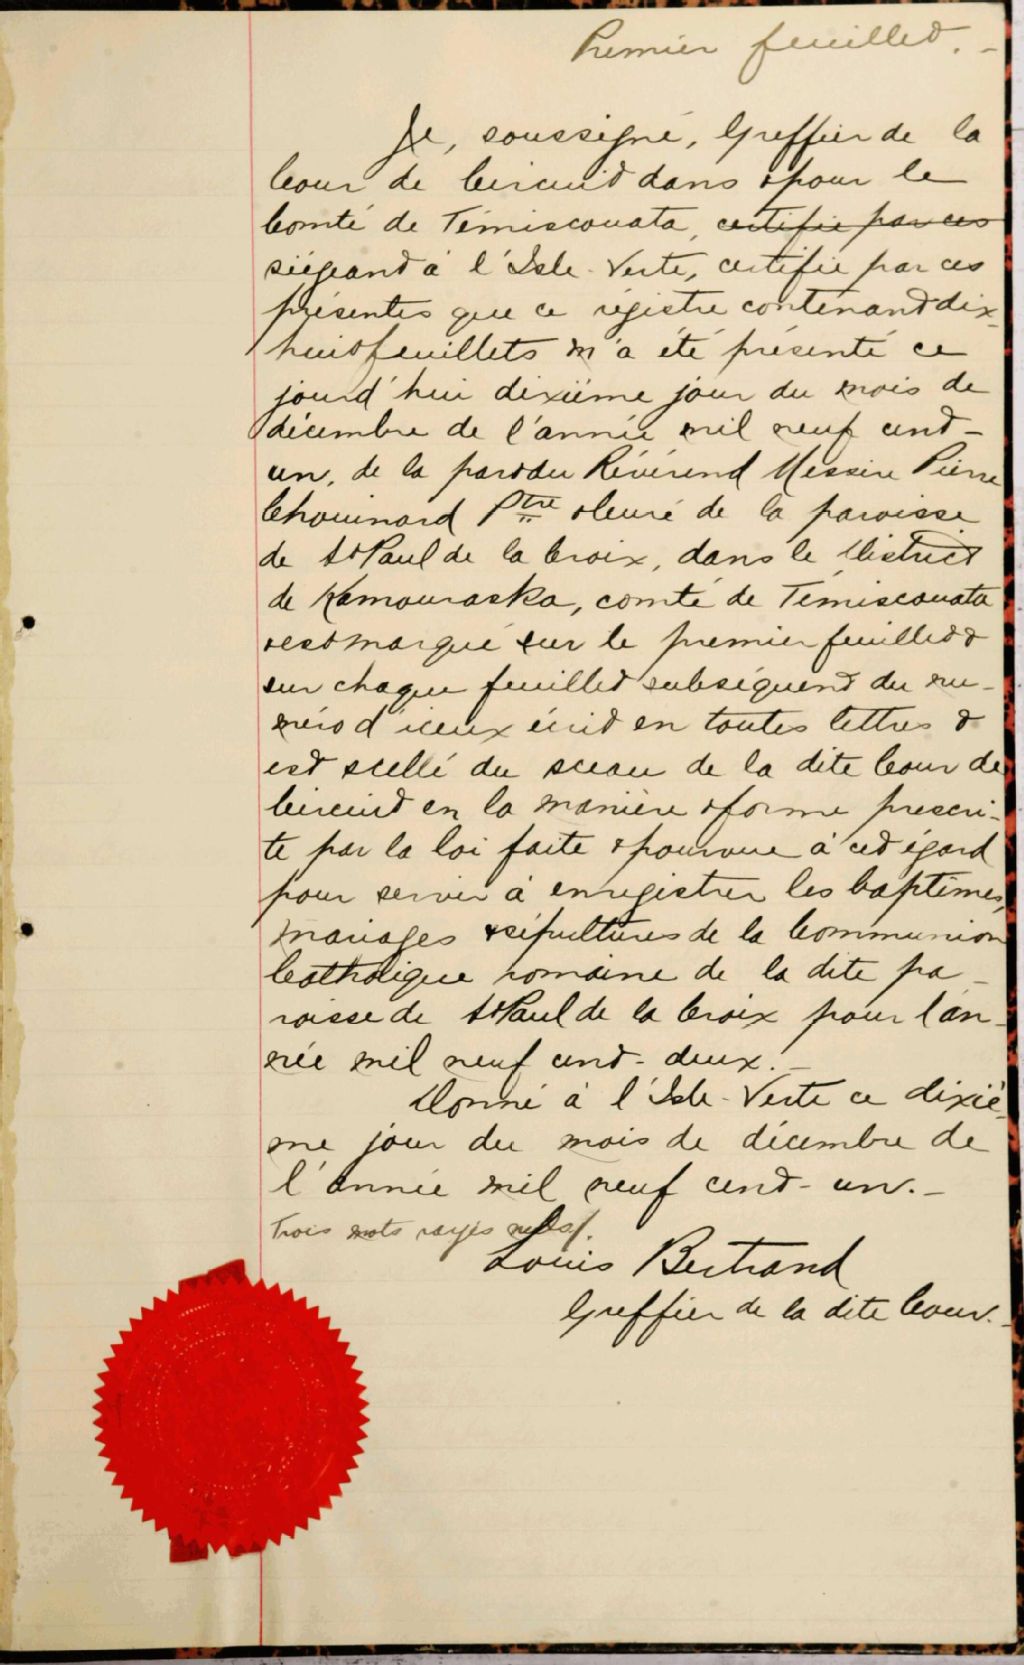 Premier feuillet.-
Je, soussigné, Greffier de la
Cour de Circuit dans & pour le
Comté de Témiscouata, certifie par ces
siégeant à l'Isle-Verte, certifie par ces
présentes que ce régistre contenant dix-
huit feuillets m'a été présenté ce
jourd'hui dixième jour du mois de
décembre de l'année mil neuf cent-
un, de la part du Révérend Messire Pierre
Chouinard Ptre & Curé de la paroisse
de St Paul de la Croix, dans le District
de Kamouraska, comté de Témiscouata
& est marqué sur le premier feuillet &
sur chaque feuillet subséquent du nu-
méro d'iceux écrit en toutes lettres &
est scellé du sceau de la dite Cour de
Circuit en la manière & forme prescri-
te par la loi faite & pourvue à cet égard
pour servir à enregistrer les baptêmes,
mariages & sépultures de la Communion
Catholique romaine de la dite pa-
roisse de St Paul de la Croix pour l'an-
née mil neuf cent-deux.-
Donné à l'Isle-Verte ce dixiè-
me jour du mois de décembre de
l'année mil neuf cent-un.-
Trois mots rayés nuls.
Louis Bertrand
Greffier de la dite Cour.-